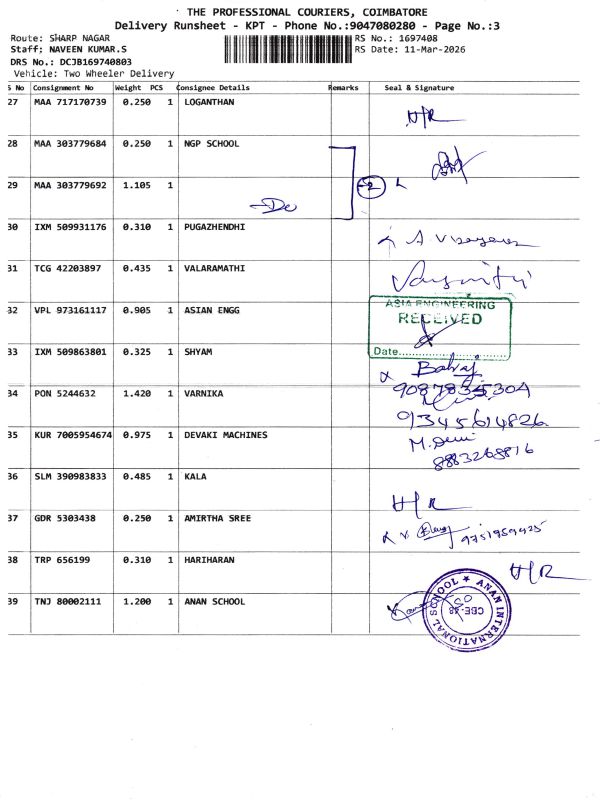 THE PROFESSIONAL COURIERS, COIMBATORE
Delivery Runsheet - KPT - Phone No.:9047080280 - Page No.:3
Route: SHARP NAGAR RS No.: 1697408
Staff; NAVEEN KUMAR.S RS Date: 11-Mar-2026
DRS No.: DCJB169740803
Vehicle: Two Wheeler Delivery
S No Consignment No Weight PCS Consignee Details Remarks Seal & Signature
27 MAA 717170739 0.250 1 LOGANTHAN H/R
28 MAA 303779684 0.250 1 NGP SCHOOL
29 MAA 303779692 1.105 1 -Do 2
30 IXM 509931176 0.310 1 PUGAZHENDHI
31 TCG 42203897 0.435 1 VALARAMATHI
32 VPL 973161117 0.905 1 ASIAN ENGG
ASIA ENGINEERING
RECEIVED
Date
33 IXM 509863801 0.325 1 SHYAM
34 PON 5244632 1.420 1 VARNIKA
9345614826
35 KUR 7005954674 0.975 1 DEVAKI MACHINES
M. Devi
8883268816
36 SLM 390983833 0.485 1 KALA H/R
37 GDR 5303438 0.250 1 AMIRTHA SREE
9751959425
38 TRP 656199 0.310 1 HARIHARAN H/R
39 TNJ 80002111 1.200 1 ANAN SCHOOL
ANAN INTERNATIONAL SCHOOL
CBE-48